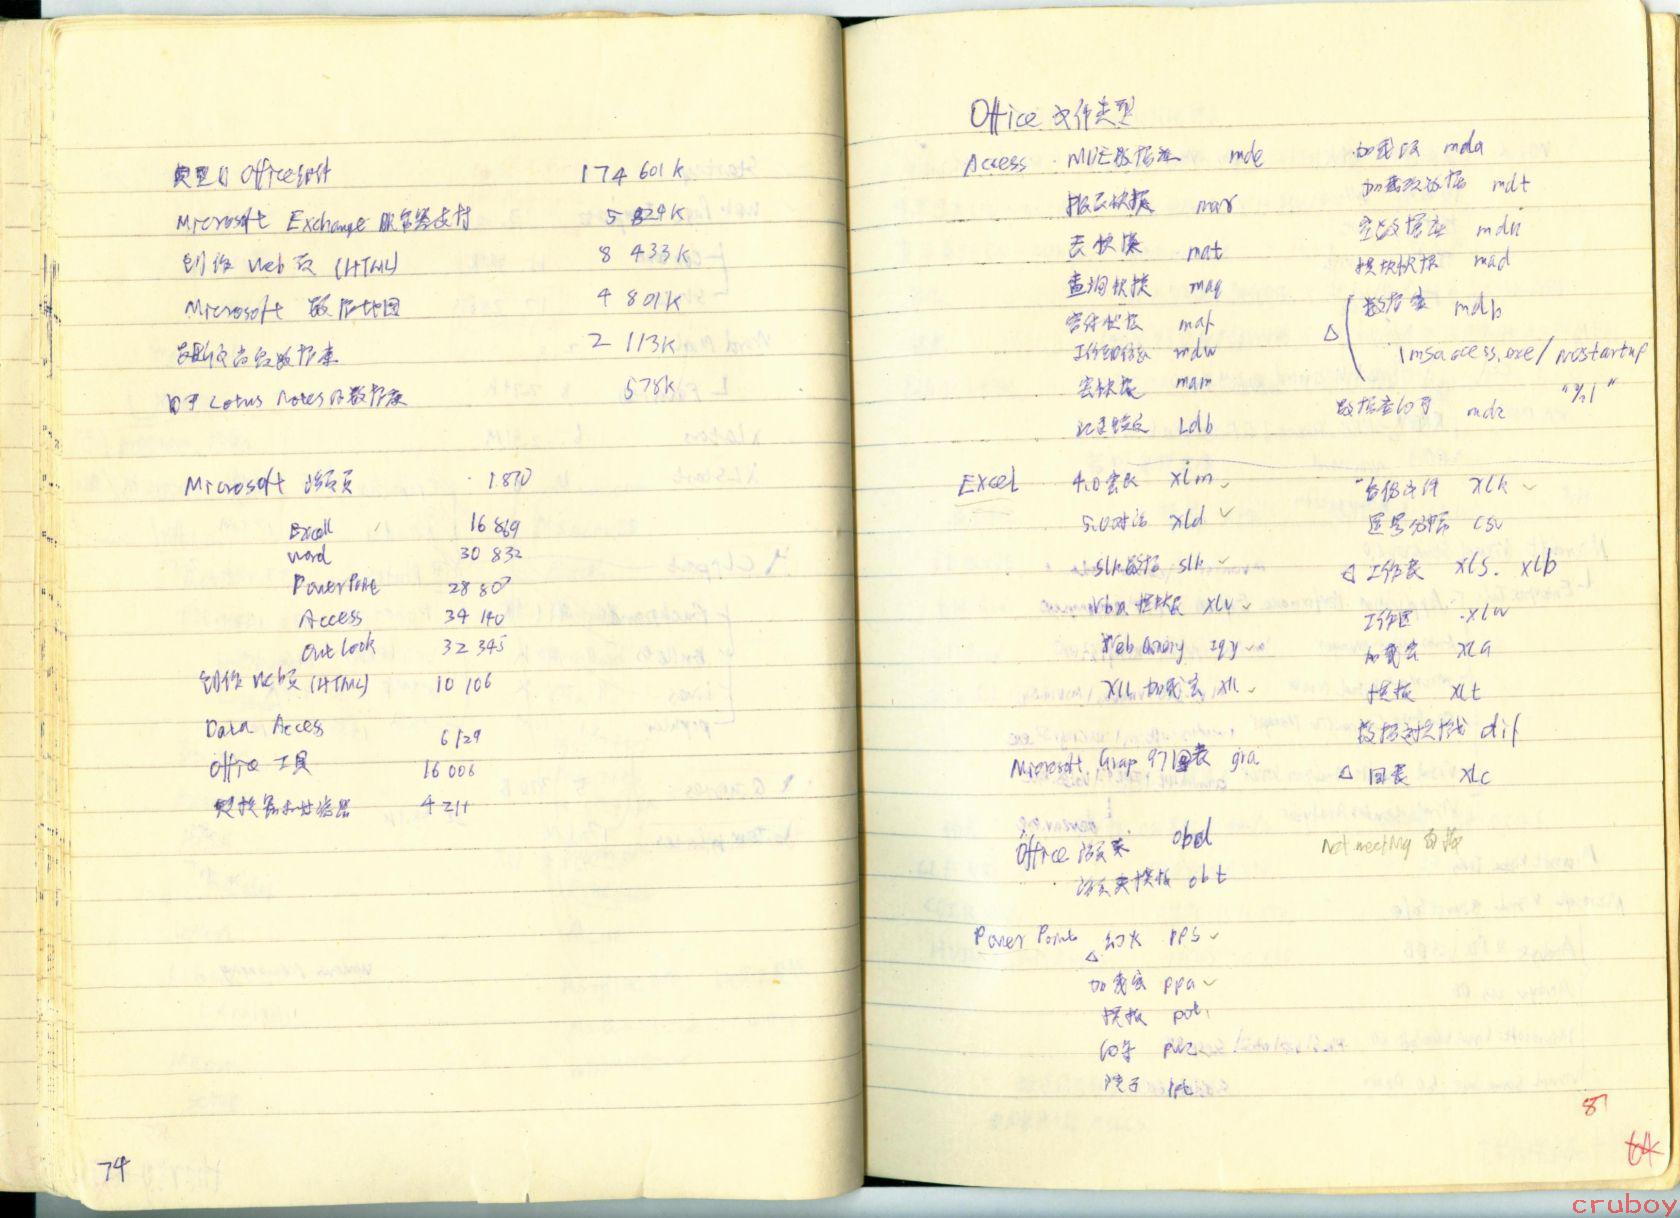 典型的 Office组件 174 601K
Microsoft Exchange 服务器支付 5 829K
创作 Web 页 (HTML) 8 433K
Microsoft 数据地图 4 801K
数据库 2 113K
用于 Lotus Notes 的数据库 578K
Microsoft 活页夹 1870
Excell 16 869
word 30 832
PowerPoint 28 807
Access 34 140
Outlook 32 345
创作 Web页 (HTML) 10 106
Data Acces 6129
Office 工具 16 006
转换器和过滤器 4 211
74
Office 文件类型
Access MDE数据库 mde 加载项 mda
报表快捷 mar 加载项数据 mdt
表快捷 mat 空数据库 mdn
查询快捷 maq 模块快捷 mad
窗体快捷 maf △ 数据库 mdb
工作组信息 mdw 1msaccess.exe / nostartup
宏快捷 mam "%1"
数据库向导 mdz
记录锁定 Ldb
Excel 4.0宏表 xlm 备份文件 xlk
5.0对话 xld 逗号分隔 csv
slk数据 slk △ 工作表 xls. xlb
Vba 模块 xlv 工作区 xlw
Web Query iqy 加载宏 xla
XLL 加载宏 xll 模板 xlt
数据交换格式 dif
Microsoft Grap 97图表 gra △ 图表 xlc
Office 活页夹 obd Net meeting 白板
活页夹模板 obt
Power Point 幻灯 pps
△
加载宏 ppa
模板 pot
向导 pwz
ppt
81
64
cruboy